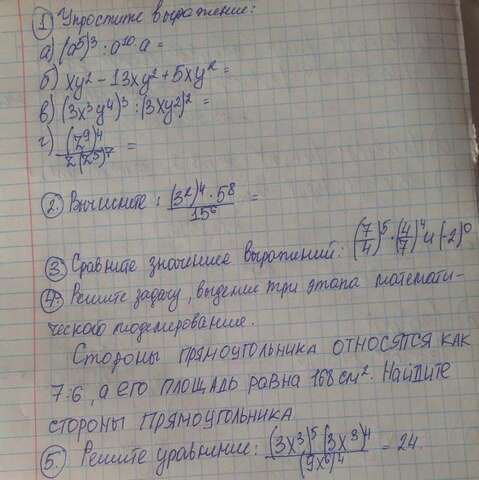 ① Упростите выражение:
а) (a⁵)³ : a¹⁰ · a =
б) xy² – 13xy² + 5xy² =
в) (3x³y⁴)³ : (3xy²)² =
г) (z⁹)⁴ / z(z⁵)⁷ =
②. Вычислите: (3²)⁴ · 5⁸ / 15⁶ =
③ Сравните значение выражений: (7/4)⁵ · (4/7)⁴ и (-2)⁰
④. Решите задачу, выделив три этапа математи-
ческого моделирования.
Стороны прямоугольника относятся как
7:6, а его площадь равна 168 см². Найдите
стороны прямоугольника.
⑤. Решите уравнение: (3x³)⁵ · (3x³)⁴ / (9x⁶)⁴ = 24.